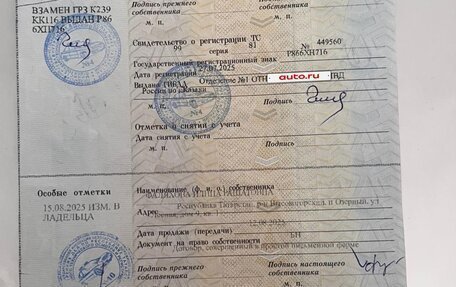 Подпись прежнего
собственника
м. п.
ВЗАМЕН ГРЗ К239
КК116 ВЫДАН Р86
6ХН716
м. п.
Свидетельство о регистрации ТС
99 серия 81 № 449560
Государственный регистрационный знак
Р866ХН716
Дата регистрации 27.07.2025
Выдано ГИБДД Отделение №1 ОТН auto.ru ВД
России по
м. п. Подпись
Отметка о снятии с учета
Дата снятия с учета
м. п. Подпись
Особые отметки
15.08.2025 ИЗМ. В
ЛАДЕЛЬЦА
Наименование (ф. и. о.) собственника
Республика Татарстан, р-н Высокогорский, п Озерный, ул
Адрес
12.08.2025
Дата продажи (передачи)
БН
Документ на право собственности
Договор, совершенный в простой письменной форме
Подпись прежнего
собственника
Подпись настоящего
собственника
м. п.